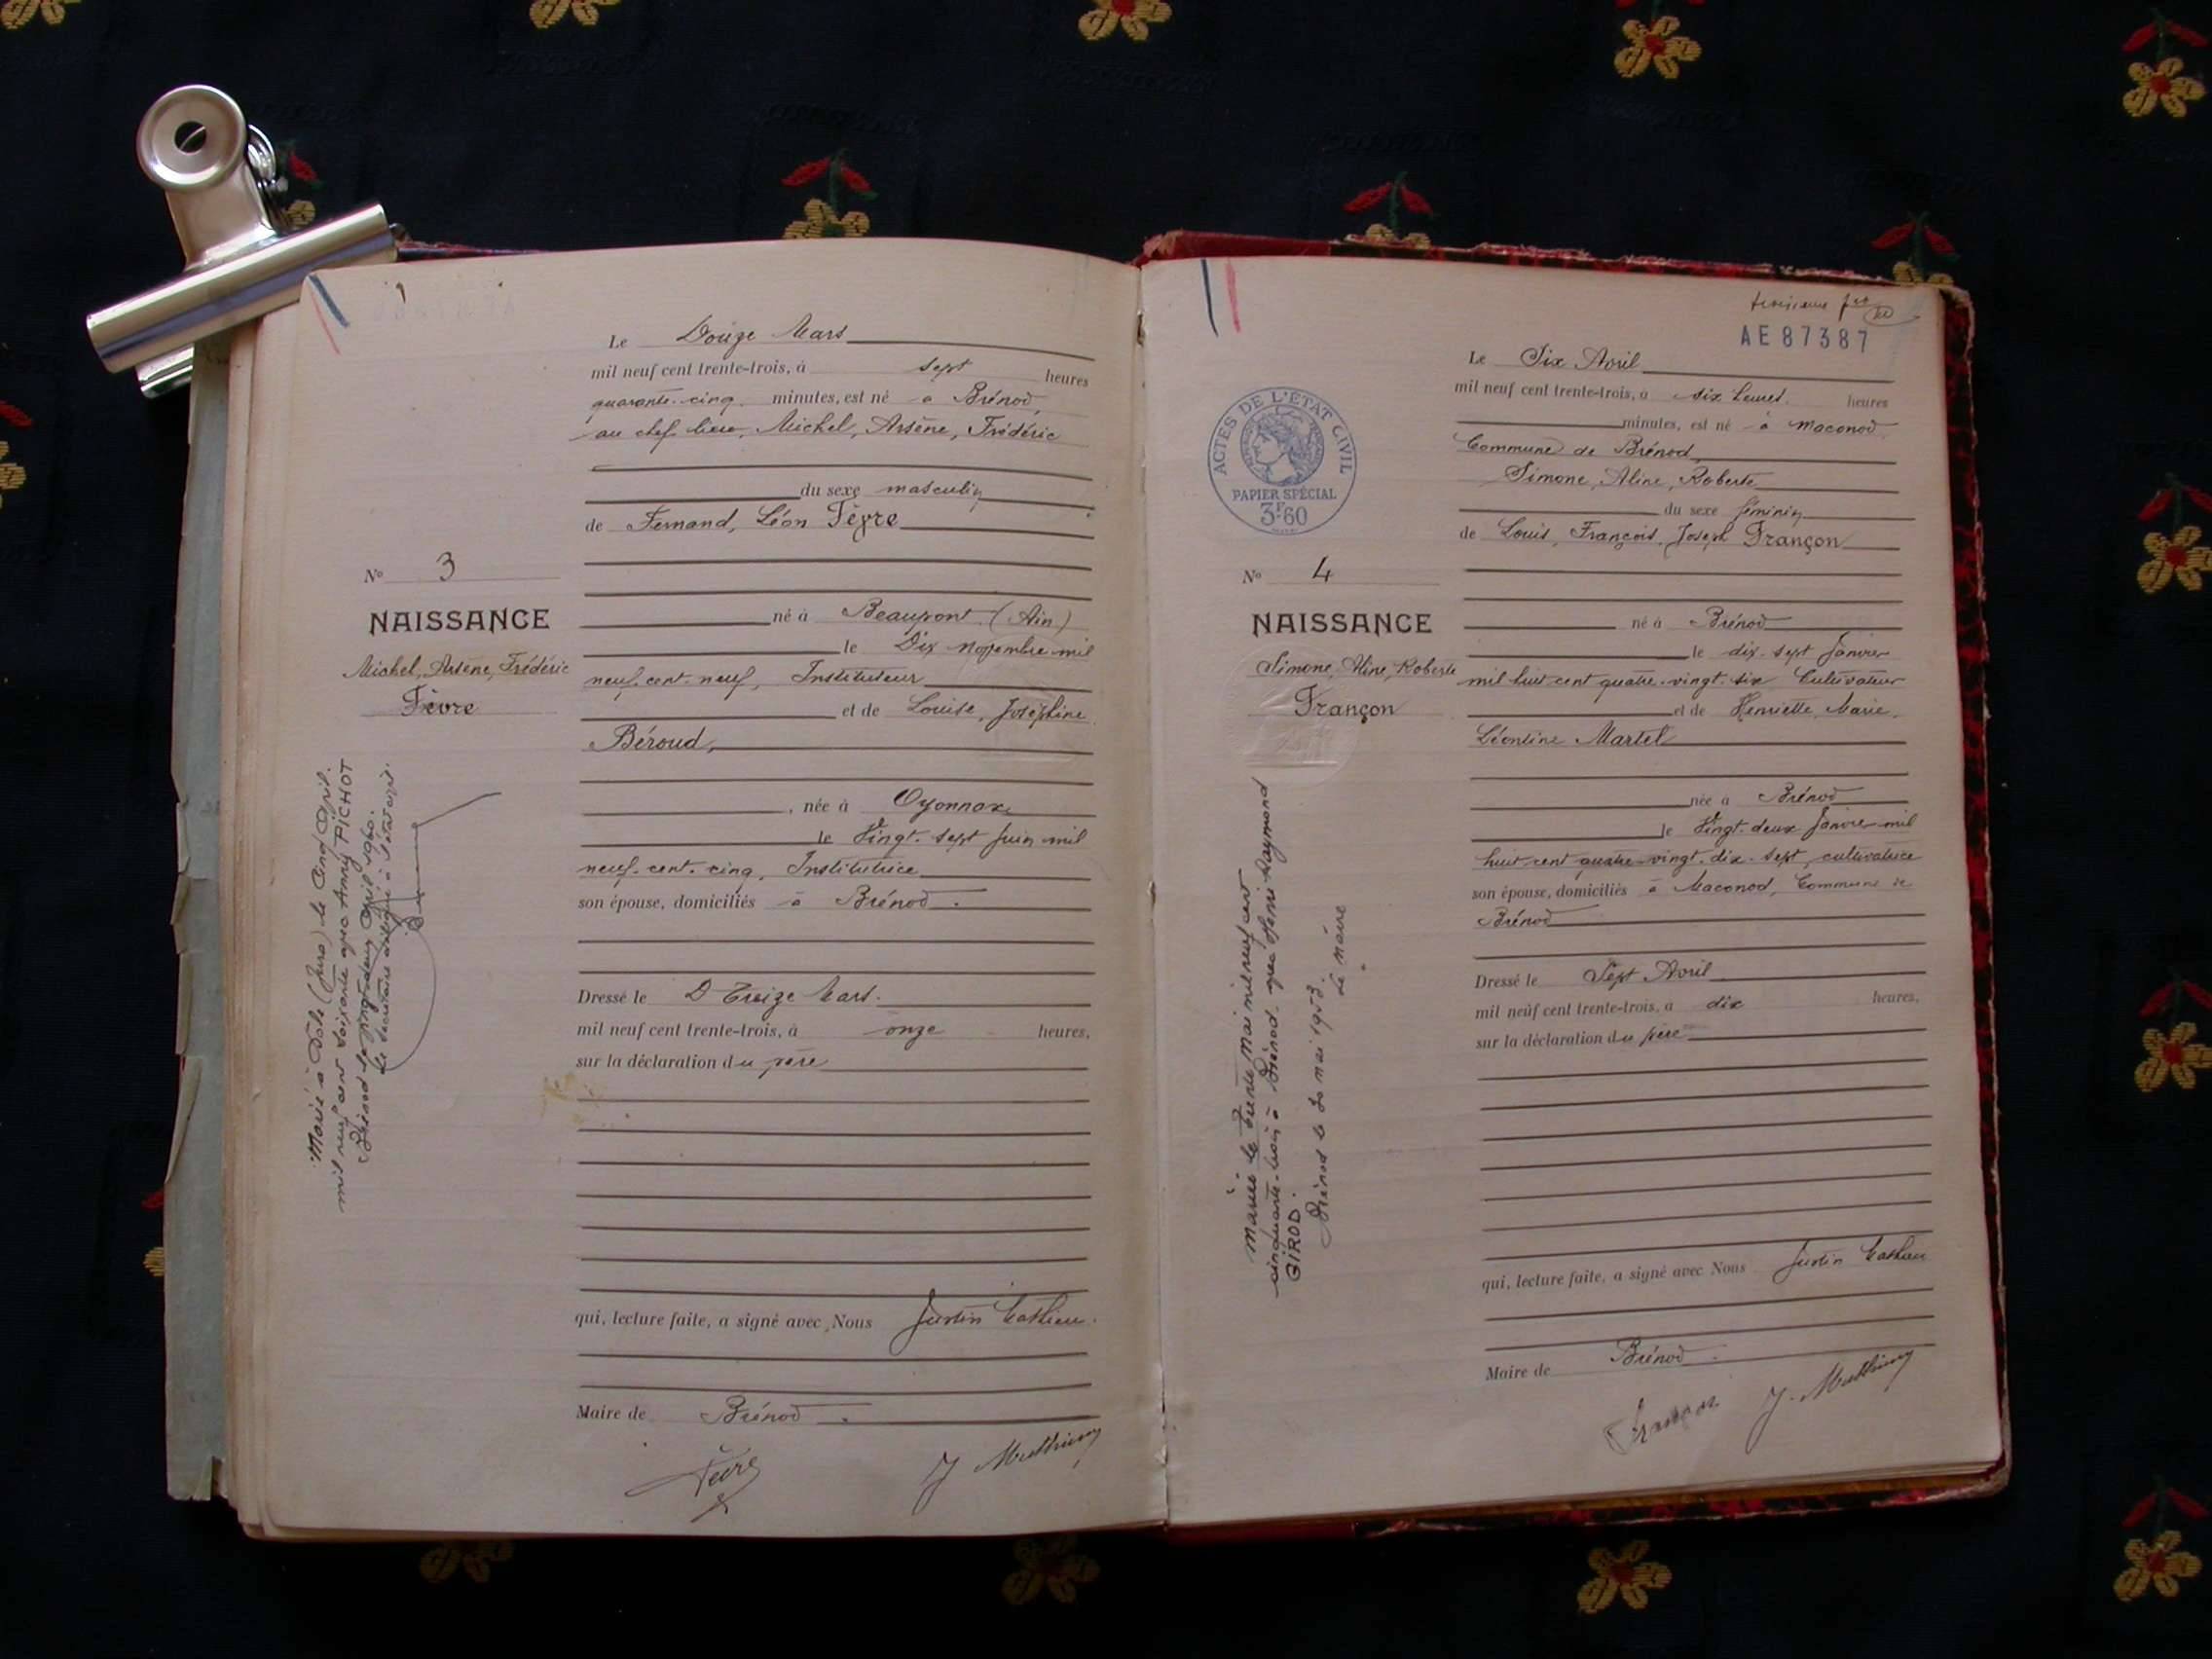 Le Douze Mars
mil neuf cent trente-trois, à sept heures
quarante-cinq minutes, est né à Brénod,
au chef lieu, Michel, Arsène, Frédéric
du sexe masculin
de Fernand, Léon Fèvre
né à Beaupont (Ain)
le Dix novembre mil
neuf-cent-neuf, Instituteur
et de Louise, Joséphine
Béroud,
, née à Oyonnax,
le Vingt-sept Juin mil
neuf-cent-cinq, Institutrice
son épouse, domiciliés à Brénod.
Dressé le Treize Mars.
mil neuf cent trente-trois, à onze heures,
sur la déclaration du père
qui, lecture faite, a signé avec Nous Justin Mathieu.
Maire de Brénod.
Fèvre
No 3
NAISSANCE
Michel, Arsène, Frédéric
Fèvre
Marié à Dole (Jura) le
mil neuf cent soixante avec Anny PICHOT
Brénod le vingt deux Avril 1960.
Le secrétaire
troisième
AE 87387
Le Six Avril
mil neuf cent trente-trois, à six heures. heures
minutes, est né à maconod
Commune de Brénod,
Simone, Aline, Roberte
du sexe féminin
de Louis, François, Joseph Françon
né à Brénod
le dix-sept Janvier
mil huit cent quatre-vingt-six Cultivateur
et de Henriette, Marie,
Léontine Martel
née à Brénod
le Vingt-deux Janvier mil
huit-cent quatre-vingt-dix-sept, cultivatrice
son épouse, domiciliés à Maconod, Commune de
Brénod
Dressé le Sept Avril
mil neuf cent trente-trois, à dix heures.
sur la déclaration du père
qui, lecture faite, a signé avec Nous Justin Mathieu
Maire de Brénod.
Françon
ACTES DE L'ÉTAT CIVIL
PAPIER SPÉCIAL
3F60
No 4
NAISSANCE
Simone, Aline, Roberte
Françon
Mariée le trente mai mil neuf cent
cinquante-trois à Brénod avec Henri Raymond
GIROD.
Brénod le 30 mai 1953.
Le maire